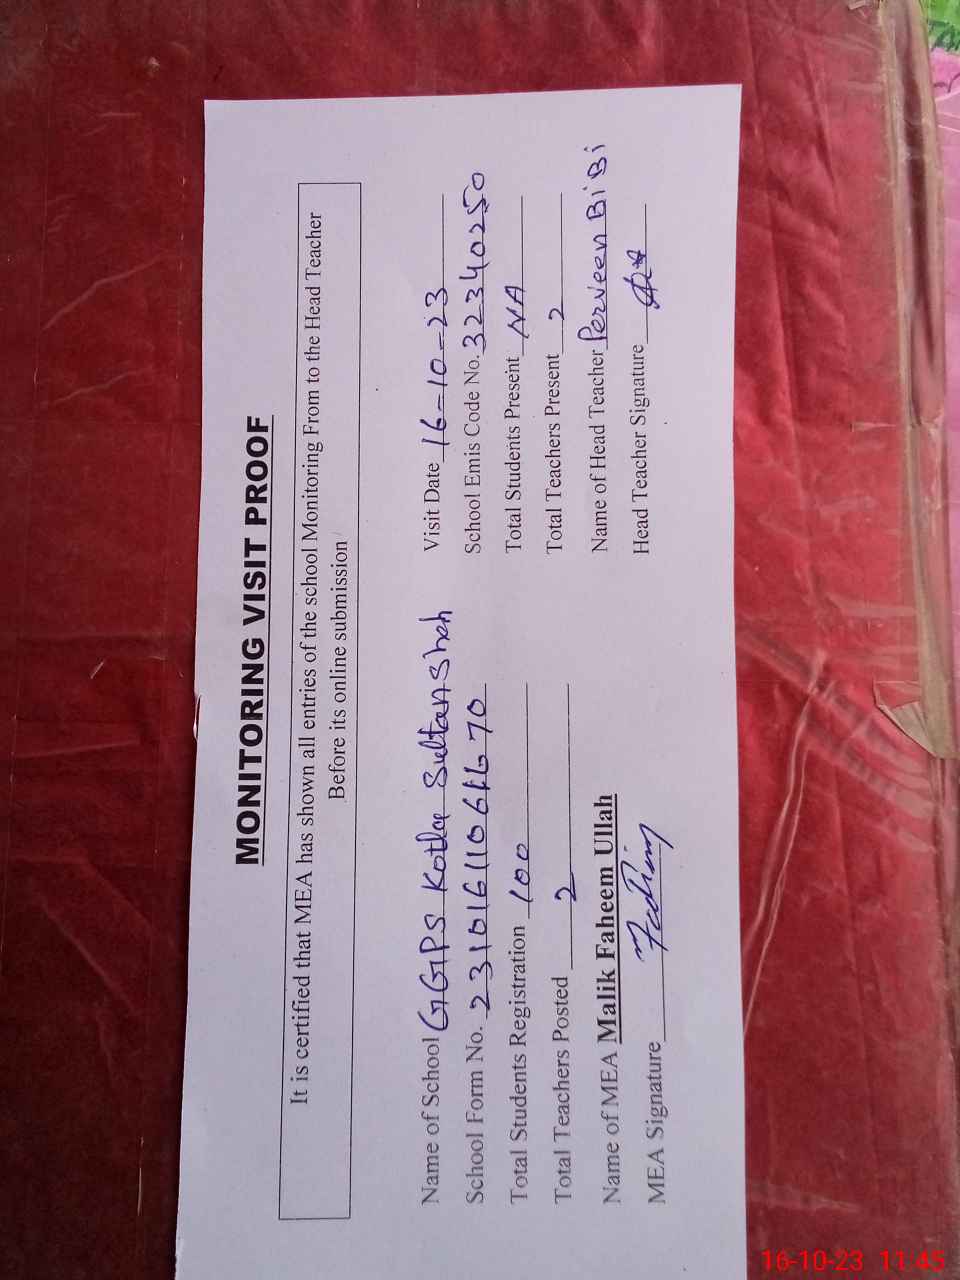 MONITORING VISIT PROOF
It is certified that MEA has shown all entries of the school Monitoring From to the Head Teacher
Before its online submission
Name of School GGPS Kotla Sultan Shah Visit Date 16-10-23
School Form No. School Emis Code No. 32340250
Total Students Registration 100 Total Students Present NA
Total Teachers Posted 2 Total Teachers Present 2
Name of MEA Malik Faheem Ullah Name of Head Teacher Perveen BiBi
MEA Signature Head Teacher Signature
16-10-23 11:45